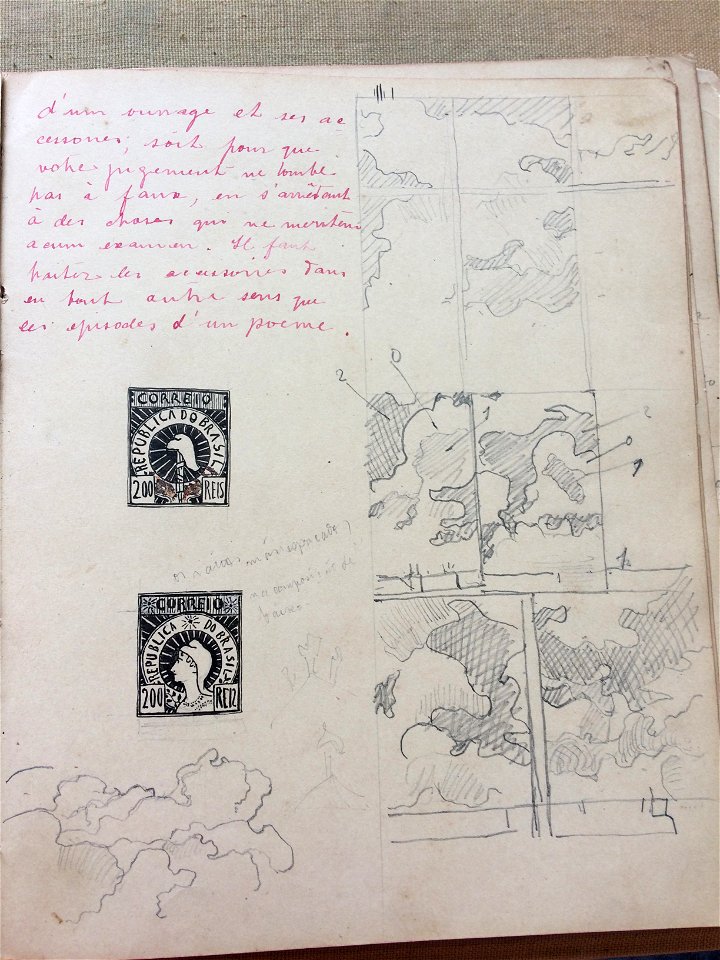 d'um ouvrage et ses ac
cessoires, soit pour que
votre jugement ne tombe
pas à faux, en s'arrêtant
à des choses qui ne meritent
aucum examen. Il faut
traiter les accessoires dans
en tout autre sens que
les episodes d'un poeme.
CORREIO
REPUBLICA DO BRASIL
200 REIS
CORREIO
REPUBLICA DO BRASIL
200 REIZ
2 0 1 2
0
1
os
na composição de
baixo
1